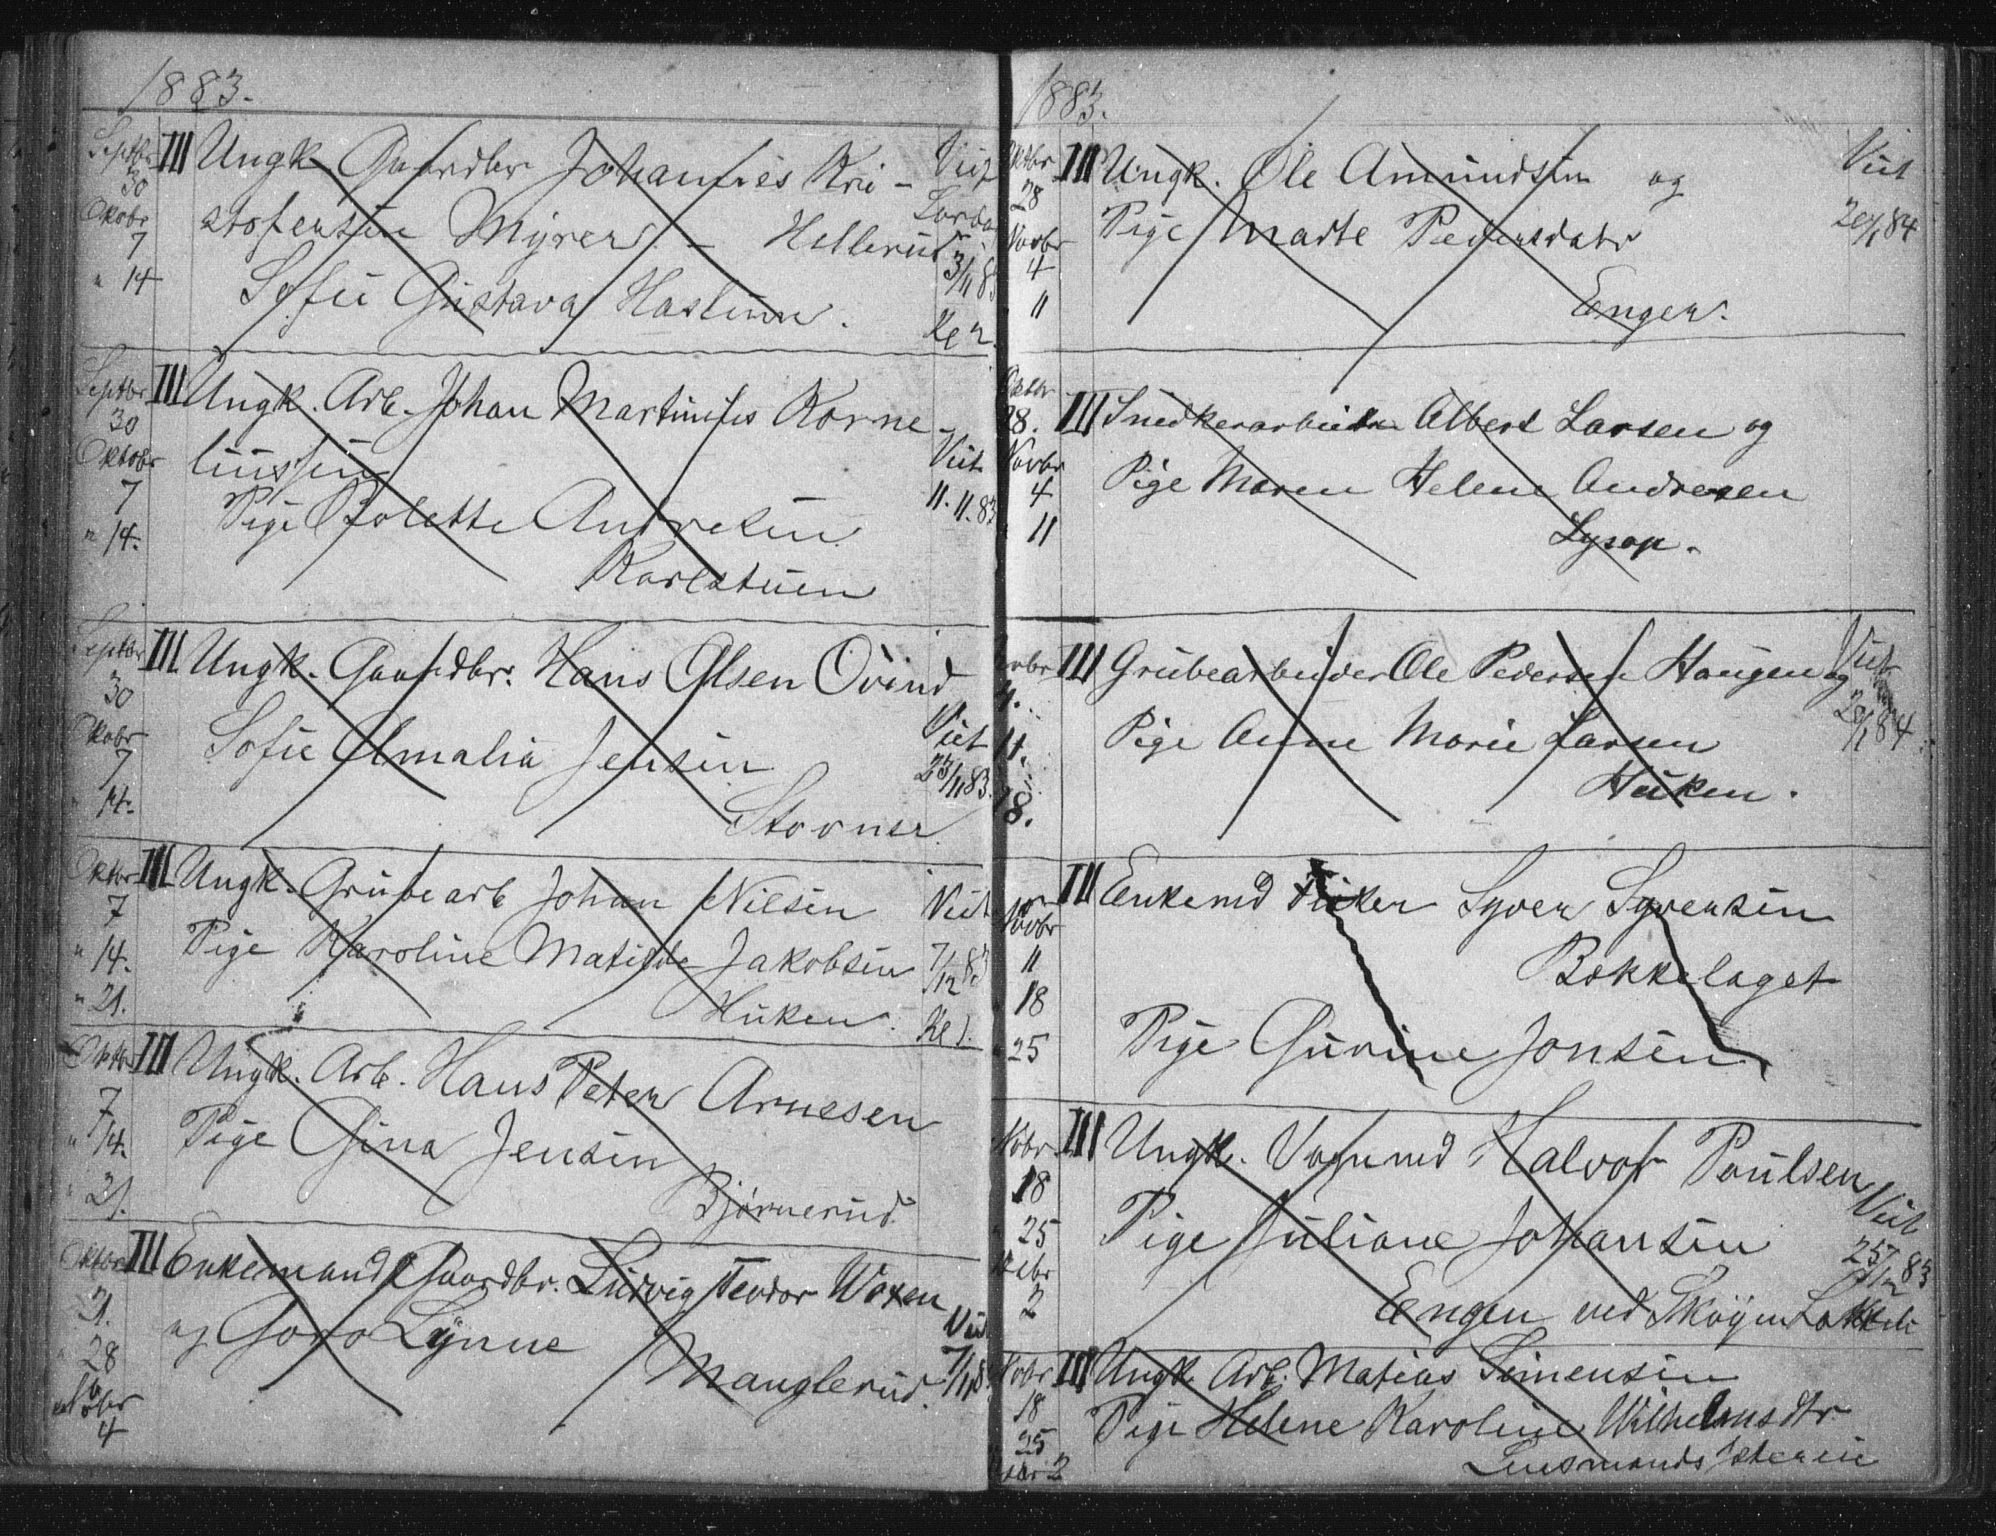 1883.
Septbr III Ungk. Gaardbr Johannes Kri- Viet
30 stofersen Myrer - Hellerud Lørda
Oktobr
7 3/11 83
" 14 Sofie Gustava Haslum. Kl 2.
Septbr III Ungk. Arb. Johan Martinius Korne-
30 liussen Viet
Oktobr
7 Pige Bolette Andresen 11.11.83
" 14. Karlstuen
Septbr III Ungk. Gaardbr. Hans Olsen Øvind
30
Oktobr Sofie Amalia Jensen Viet
7 23/11 83.
" 14. Stovner
Oktbr III Ungk. Grubearb Johan Nilsen Viet
7
" 14. Pige Karoline Matilde Jakobsen 7/12 83
" 21. Huken. Kl 1.
Oktbr III Ungk. Arb. Hans Peter Arnesen
7
" 14. Pige Gina Jensen
" 21. Bjørnerud
Oktbr III Enkemand Gaardbr. Ludvig Teodor Woxen
21. og Goro Lynne Viet
" 28 Manglerud. 7/11 8
Nobr
4
1883.
Oktbr III Ungk. Ole Amundsen og Viet
28
Novbr Pige Marte Pedersdatr 20/1 84
4
" 11 Enger.
Oktbr
28. III Snedkerarbeider Albert Larsen og
Novbr
4 Pige Maren Helene Andresen
" 11 Lysop.
Novbr III Grubearbeider Ole Pedersen Haugen og Viet
4. 20/1 84
11. Pige Anne Marie Larsen
18. Huken.
III Enkemd Syver Syversen
Novbr
11 Bækkelaget
" 18
" 25 Pige Gurine Jonsen
Nobr III Ungk. Vognmd Halvor Paulsen
18 Viet
" 25 Pige Juliane Johansen 25/12 83
Debr
2 Engen ved Skøyen
Nobr III Ungk. Arb. Matias Simensen
18 Pige Helene Karoline Wilhelmsdtr
" 25
Debr 2 Lensmands